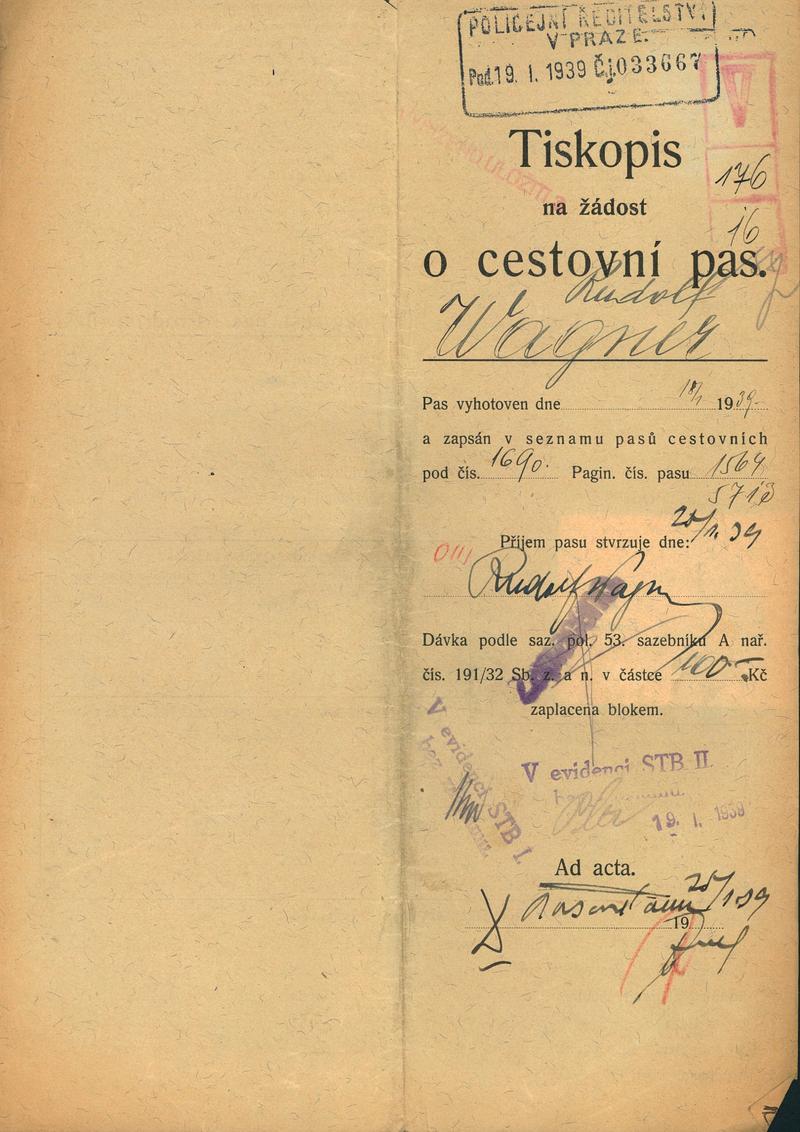 POLICEJNÍ ŘEDITELSTVÍ
V PRAZE.
Pod. 19. I. 1939 Č.j. 033667
V
Tiskopis
176
na žádost
16
o cestovní pas.
Rudolf
Wagner
Pas vyhotoven dne 18/1 1939
a zapsán v seznamu pasů cestovních
pod čís. 1690. Pagin. čís. pasu 1564
Příjem pasu stvrzuje dne: 25/1. 39
Rudolf Wagner
Dávka podle saz. pol. 53. sazebníku A nař.
čís. 191/32 Sb. z. a n. v částce 100 Kč
zaplacena blokem.
V evidenci STB I.
bez
V evidenci STB II.
19. I. 1939
Ad acta.
25/1 39
19